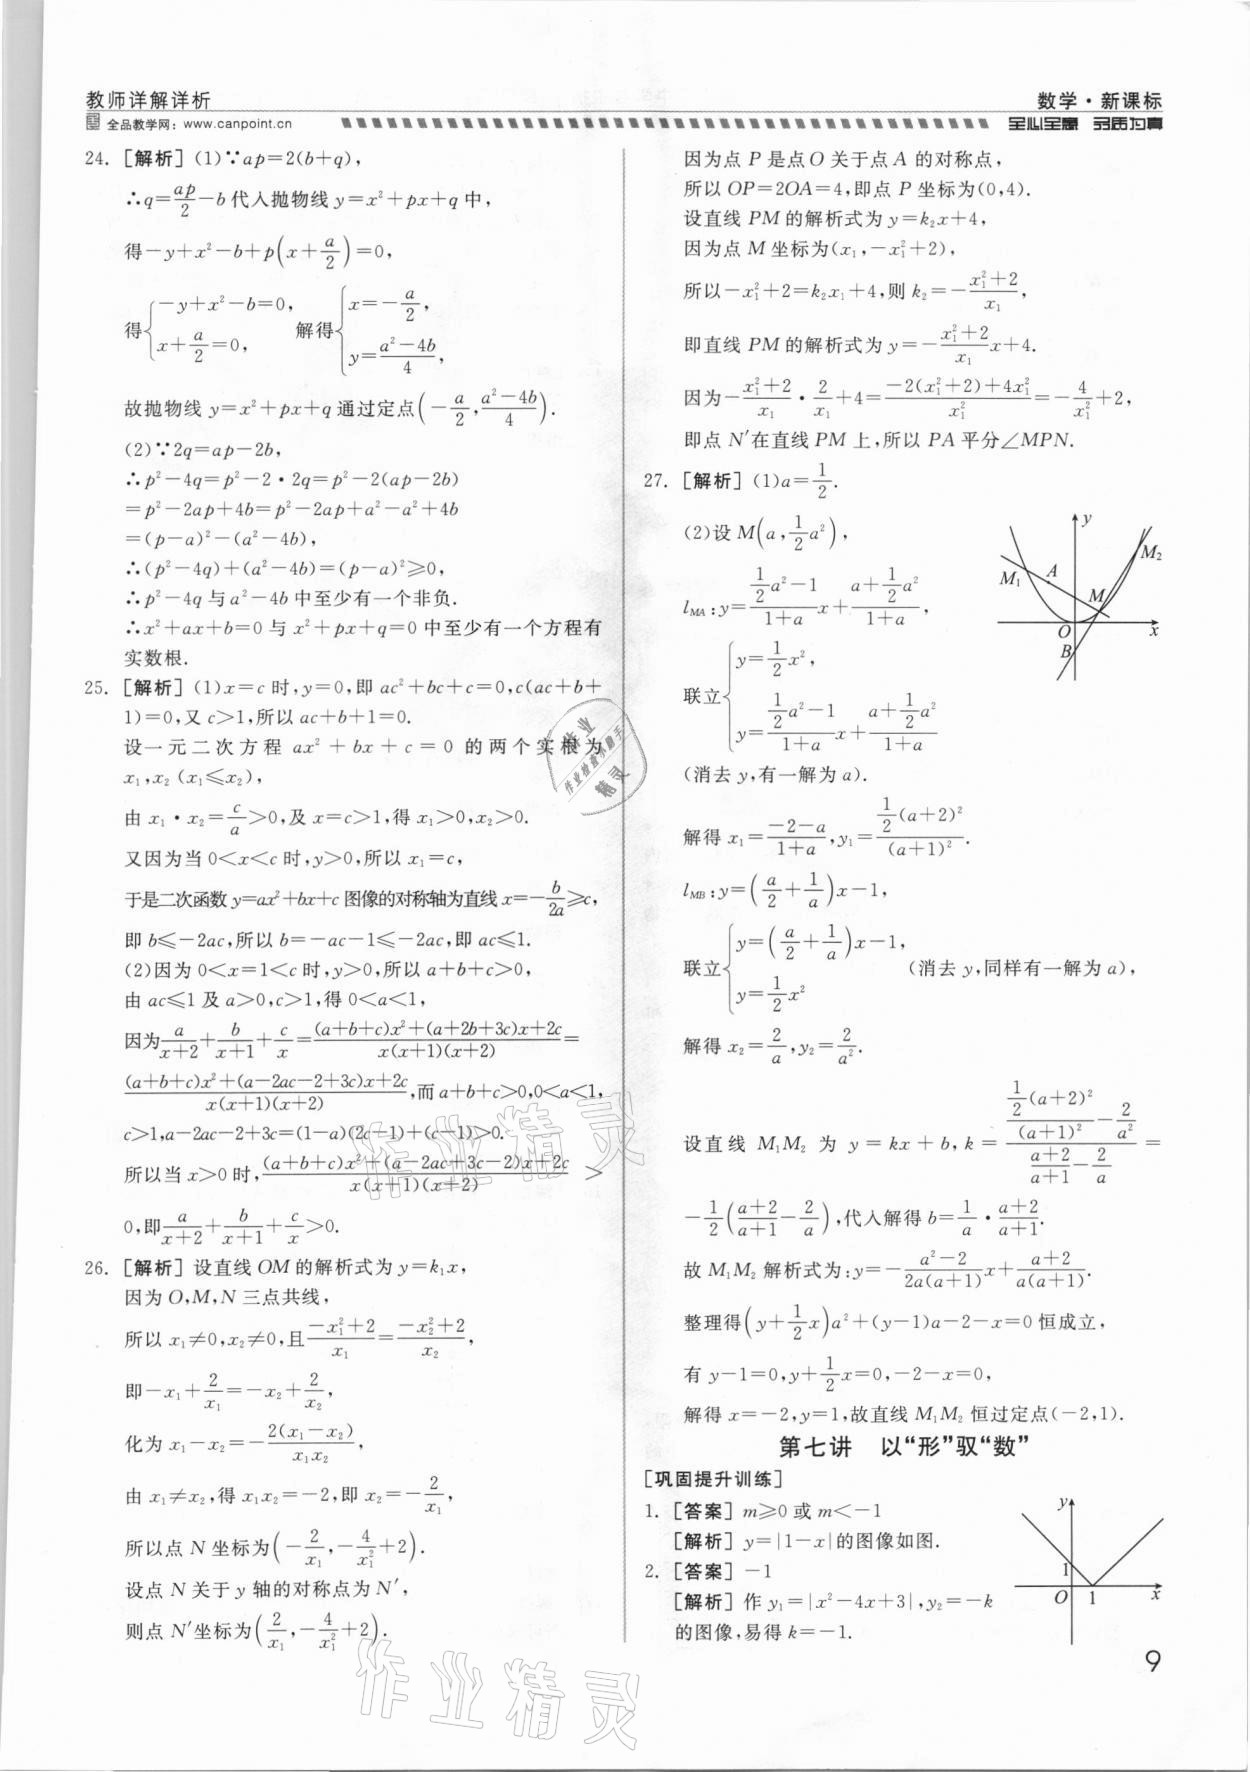 教师详解详析
数学·新课标
全品教学网：www.canpoint.cn
全心全意 另质为真
24. [解析] (1)∵ap=2(b+q),
∴q=ap/2-b代入抛物线y=x²+px+q中,
得-y+x²-b+p(x+a/2)=0,
得{-y+x²-b=0, x+a/2=0, 解得{x=-a/2, y=(a²-4b)/4,
故抛物线y=x²+px+q通过定点(-a/2,(a²-4b)/4).
(2)∵2q=ap-2b,
∴p²-4q=p²-2·2q=p²-2(ap-2b)
=p²-2ap+4b=p²-2ap+a²-a²+4b
=(p-a)²-(a²-4b),
∴(p²-4q)+(a²-4b)=(p-a)²≥0,
∴p²-4q与a²-4b中至少有一个非负.
∴x²+ax+b=0与x²+px+q=0中至少有一个方程有
实数根.
25. [解析] (1)x=c时,y=0,即ac²+bc+c=0,c(ac+b+
1)=0,又c>1,所以ac+b+1=0.
设一元二次方程ax²+bx+c=0的两个实根为
x₁,x₂(x₁≤x₂),
由x₁·x₂=c/a>0,及x=c>1,得x₁>0,x₂>0.
又因为当0<x<c时,y>0,所以x₁=c,
于是二次函数y=ax²+bx+c图像的对称轴为直线x=-b/2a≥c,
即b≤-2ac,所以b=-ac-1≤-2ac,即ac≤1.
(2)因为0<x=1<c时,y>0,所以a+b+c>0,
由ac≤1及a>0,c>1,得0<a<1,
因为a/(x+2)+b/(x+1)+c/x=((a+b+c)x²+(a+2b+3c)x+2c)/(x(x+1)(x+2))=
((a+b+c)x²+(a-2ac-2+3c)x+2c)/(x(x+1)(x+2)),而a+b+c>0,0<a<1,
c>1,a-2ac-2+3c=(1-a)(2c-1)+(c-1)>0.
所以当x>0时,((a+b+c)x²+(a-2ac+3c-2)x+2c)/(x(x+1)(x+2))>
0,即a/(x+2)+b/(x+1)+c/x>0.
26. [解析] 设直线OM的解析式为y=k₁x,
因为O,M,N三点共线,
所以x₁≠0,x₂≠0,且(-x₁²+2)/x₁=(-x₂²+2)/x₂,
即-x₁+2/x₁=-x₂+2/x₂,
化为x₁-x₂=-2(x₁-x₂)/(x₁x₂),
由x₁≠x₂,得x₁x₂=-2,即x₂=-2/x₁,
所以点N坐标为(-2/x₁,-4/x₁²+2).
设点N关于y轴的对称点为N′,
则点N′坐标为(2/x₁,-4/x₁²+2).
因为点P是点O关于点A的对称点,
所以OP=2OA=4,即点P坐标为(0,4).
设直线PM的解析式为y=k₂x+4,
因为点M坐标为(x₁,-x₁²+2),
所以-x₁²+2=k₂x₁+4,则k₂=-(x₁²+2)/x₁,
即直线PM的解析式为y=-(x₁²+2)/x₁x+4.
因为-(x₁²+2)/x₁·2/x₁+4=(-2(x₁²+2)+4x₁²)/x₁²=-4/x₁²+2,
即点N′在直线PM上,所以PA平分∠MPN.
27. [解析] (1)a=1/2.
(2)设M(a,1/2a²),
l_MA:y=(1/2a²-1)/(1+a)x+(a+1/2a²)/(1+a),
联立{y=1/2x², y=(1/2a²-1)/(1+a)x+(a+1/2a²)/(1+a)
(消去y,有一解为a).
解得x₁=(-2-a)/(1+a),y₁=(1/2(a+2)²)/(a+1)².
l_MB:y=(a/2+1/a)x-1,
联立{y=(a/2+1/a)x-1, y=1/2x² (消去y,同样有一解为a),
解得x₂=2/a,y₂=2/a².
设直线M₁M₂为y=kx+b,k=((1/2(a+2)²)/(a+1)²-2/a²)/((a+2)/(a+1)-2/a)=
-1/2((a+2)/(a+1)-2/a),代入解得b=1/a·(a+2)/(a+1).
故M₁M₂解析式为:y=-(a²-2)/(2a(a+1))x+(a+2)/(a(a+1)).
整理得(y+1/2x)a²+(y-1)a-2-x=0恒成立,
有y-1=0,y+1/2x=0,-2-x=0,
解得x=-2,y=1,故直线M₁M₂恒过定点(-2,1).
y
M₂
M₁
A
M
O
x
B
第七讲 以“形”驭“数”
[巩固提升训练]
1. [答案] m≥0或m<-1
[解析] y=|1-x|的图像如图.
2. [答案] -1
[解析] 作y₁=|x²-4x+3|,y₂=-k
的图像,易得k=-1.
y
1
O
1
x
9
作业精灵
作业精灵
作业
作业检查小助手
精灵